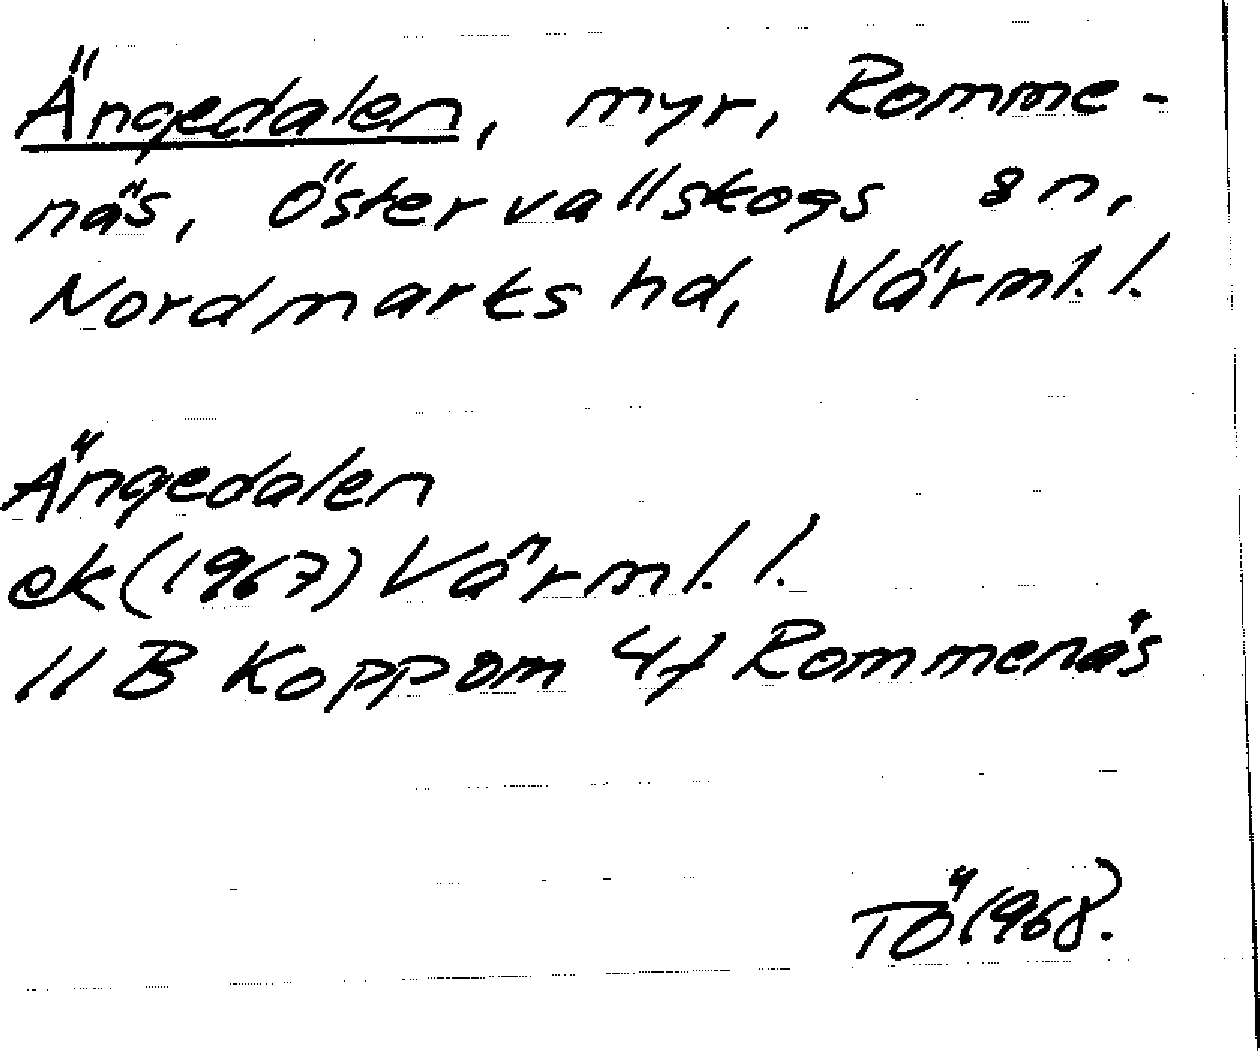 Ängedalen, myr, Romme-
näs, Östervallskogs sn,
Nordmarks hd, Värml. l.
Ängedalen
ek (1967) Värml. l.
11 B Koppom 4f Rommenäs
TÖ 1968.